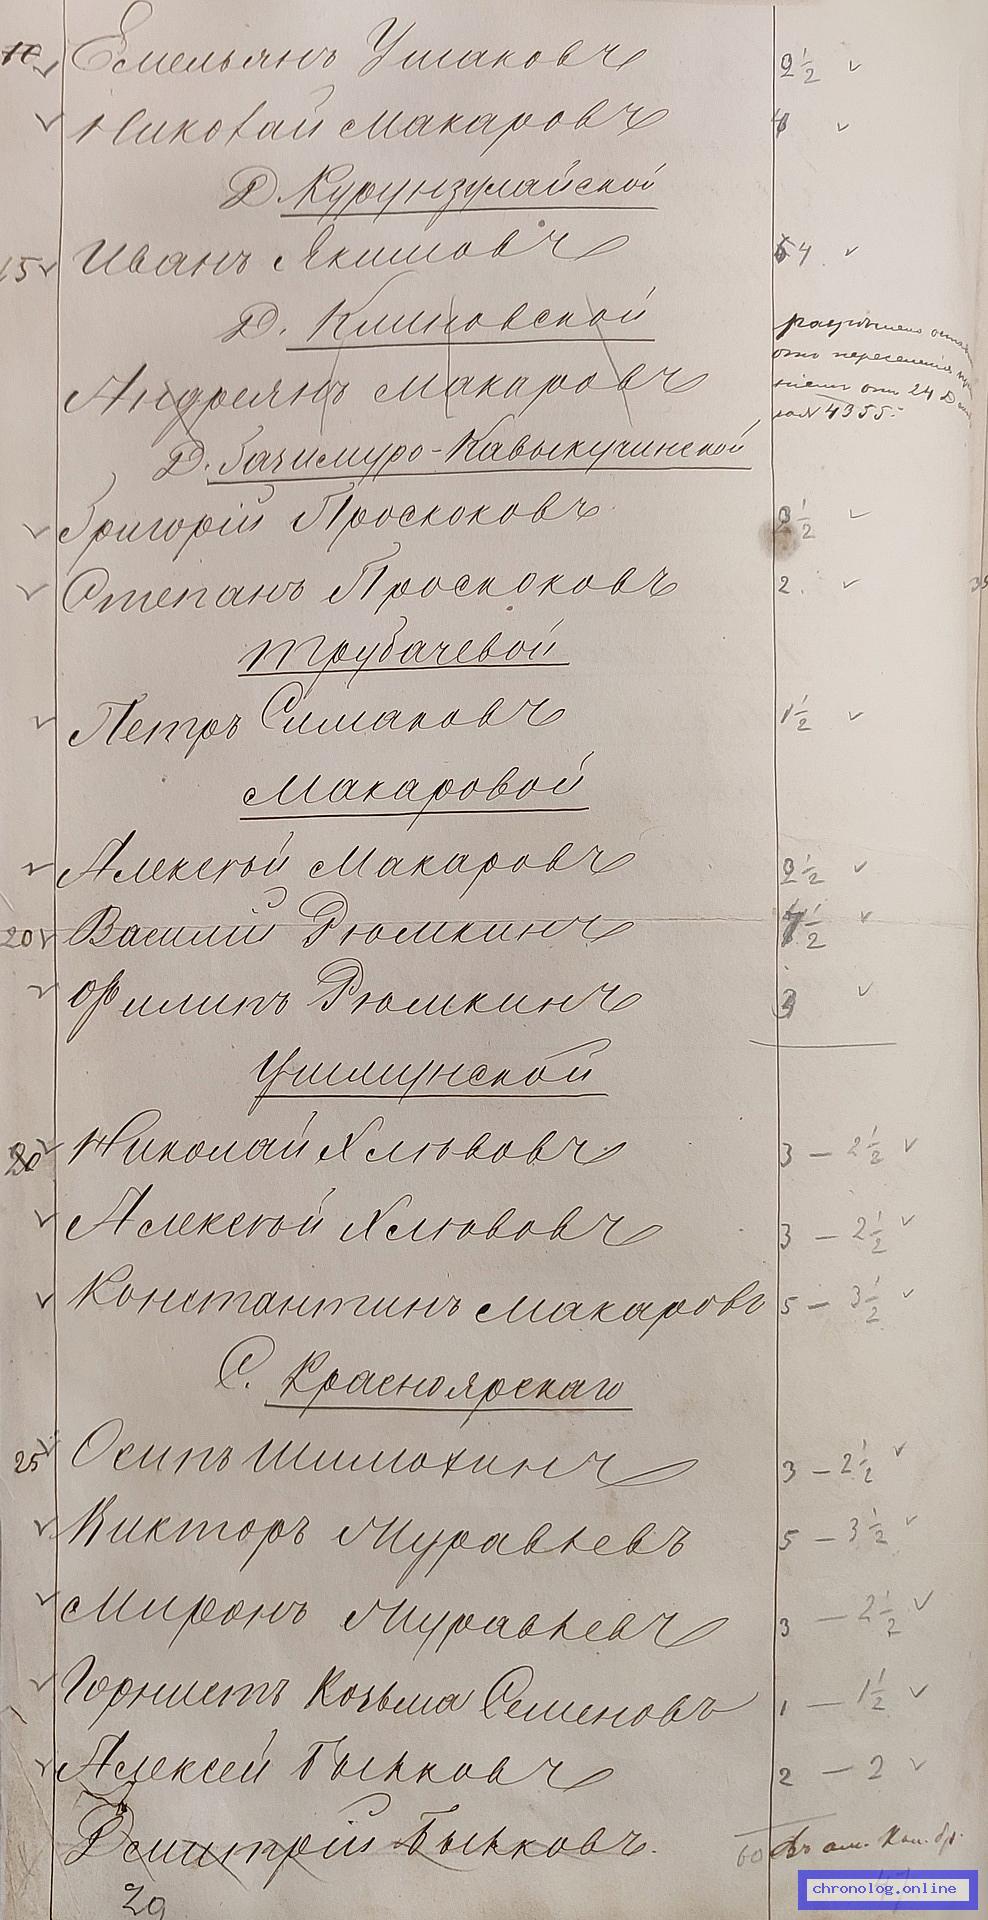 Емельянъ Ушаковъ 2 1/2
Николай Макаровъ 4
Д. Курунзулайской
15 Иванъ Якимовъ 4
Д. Климовской
Андреянъ Макаровъ
от 24 Д
№ 4355.
Д. Газимуро-Кавыкучинской
Григорій Проскоковъ 2 1/2
Степанъ Проскоковъ 2.
Трубачевой
Петръ Симаковъ 1 1/2
Макаровой
Алексѣй Макаровъ 2 1/2
20 Василій Рюмкинъ 1/2
Филипъ Рюмкинъ 3
Ушмунской
20 Николай Хлювовъ 3 — 2 1/2
Алексѣй Хлювовъ 3 — 2 1/2
Константинъ Макаровъ 5 — 3 1/2
С. Красноярскаго
25 Осипъ Шимохинъ 3 — 2 1/2
Викторъ Муравьевъ 5 — 3 1/2
Миронъ Муравьевъ 3 — 2 1/2
Горнистъ Козьма Семеновъ 1 — 1 1/2
Алексей Быьковъ 2 — 2
Дмитрій Быьковъ. 60
29
chronolog.online